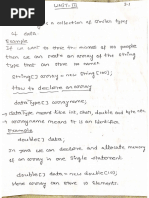 UNIT-III
3-1
is a collection of similar types
of data.
Example
If we want to store the names of 100 people
then we can create an array of the string
type that can store 100 names.
String[] array = new String[100];
How to declare an array
dataType[] arrayname;
dataType
array name → it is an identifier.
Example
double[] data;
In java we can declare and allocate memory
of an array in one single statement.
double[] data = new double[10];
Here array can store 10 elements.